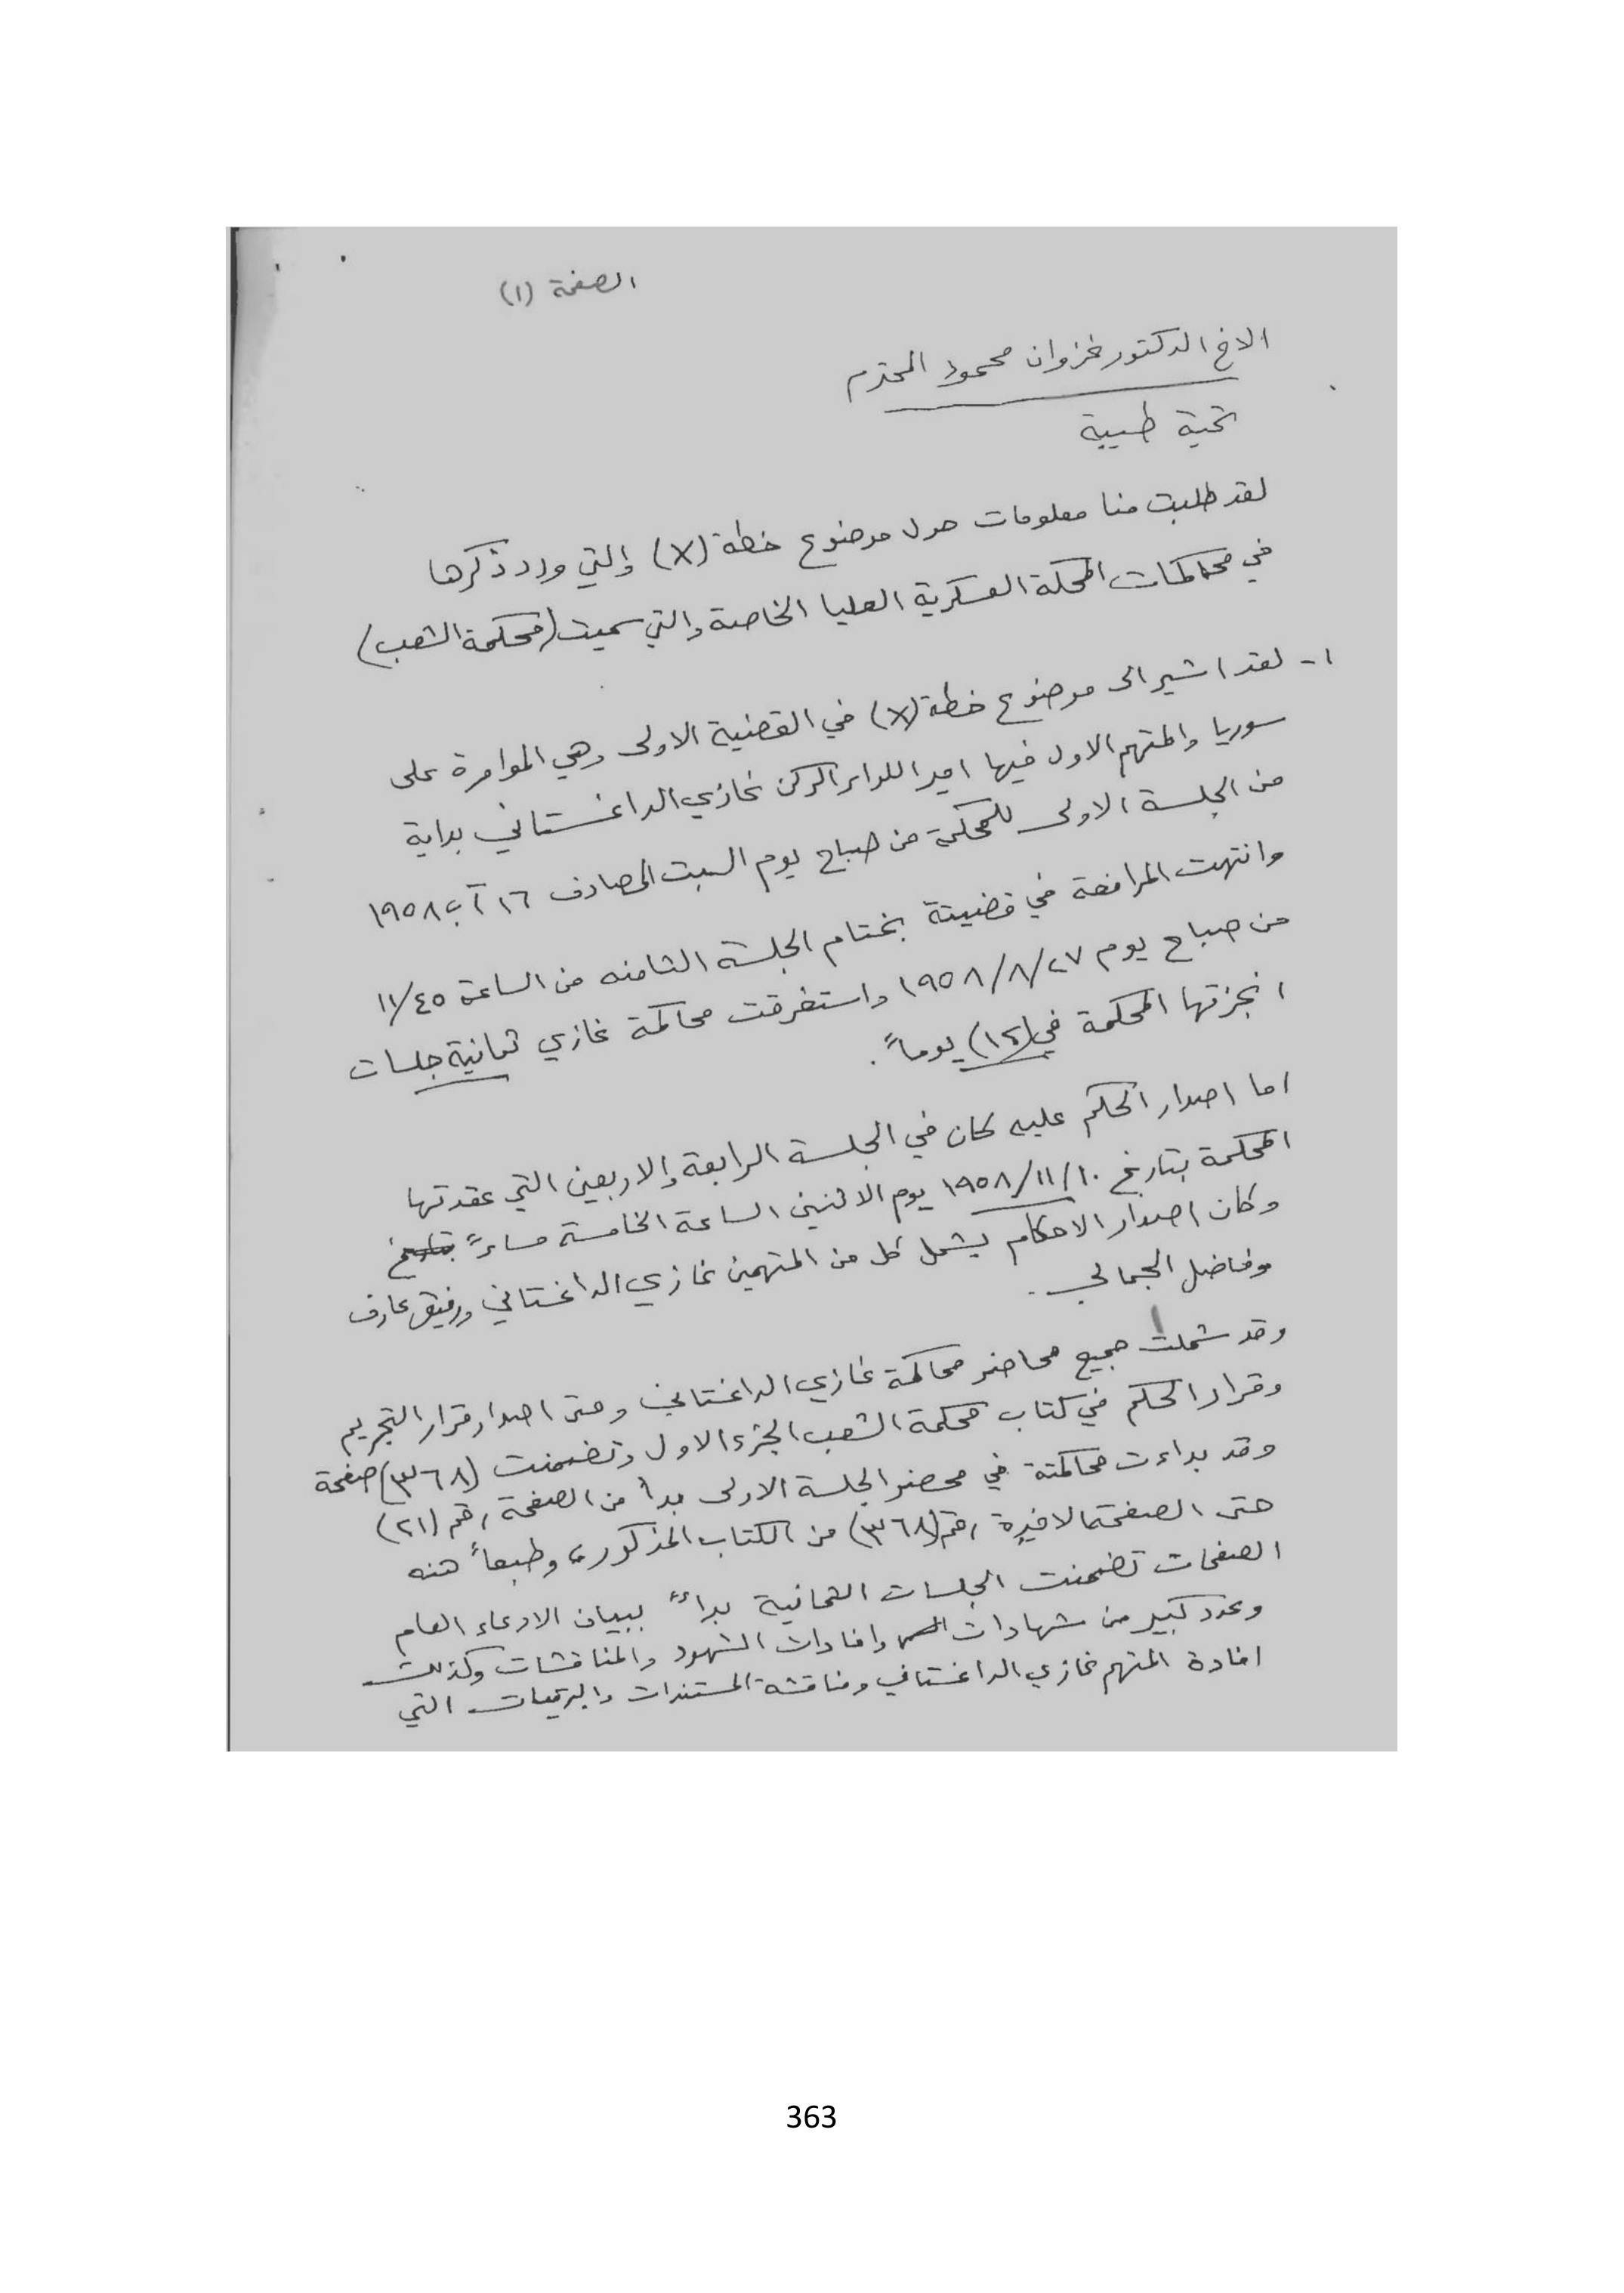 الصفحة (١)
الاخ الدكتور غزوان محمود المحترم
تحية طيبة
لقد طلبت منا معلومات حول موضوع خطة (X) والتي ورد ذكرها
في محاكمات المحكمة العسكرية العليا الخاصة والتي سميت (محكمة الشعب)
١- لقد اشير الى موضوع خطة (X) في القضية الاولى وهي الموامرة على
سوريا والمتهم الاول فيها امير اللواء الركن غازي الداغستاني بداية
من الجلسة الاولى للمحكمة من صباح يوم السبت المصادف ١٦ آب ١٩٥٨
وانتهت المرافعة في قضيتة بختام الجلسة الثامنه من الساعة ١١/٤٥
من صباح يوم ١٩٥٨/٨/٢٧ واستغرقت محاكمة غازي ثمانية جلسات
انجزتها المحكمة في (١٢) يوماً.
اما اصدار الحكم عليه كان في الجلسة الرابعة والاربعين التي عقدتها
المحكمة بتاريخ ١٩٥٨/١١/١٠ يوم الاثنين الساعة الخامسة مساءً بتاريخ
وكان اصدار الاحكام يشمل كل من المتهمين غازي الداغستاني ورفيق عارف
وفاضل الجمالي.
وقد شملت جميع محاضر محاكمة غازي الداغستاني وحتى اصدار قرار التجريم
وقرار الحكم في كتاب محكمة الشعب الجزء الاول وتضمنت (٣٦٨) صفحة
وقد بداءت محاكمتة في محضر الجلسة الاولى بدأ من الصفحة رقم (٢١)
حتى الصفحة الاخيرة رقم (٣٦٨) من الكتاب المذكور، وطبعاً هنه
الصفحات تضمنت الجلسات الثمانية بداءً ببيان الادعاء العام
وعدد كبير من شهادات وافادات الشهود والمناقشات وكذلك
افادة المتهم غازي الداغستاني ومناقشة المستندات والبرقيات التي
363